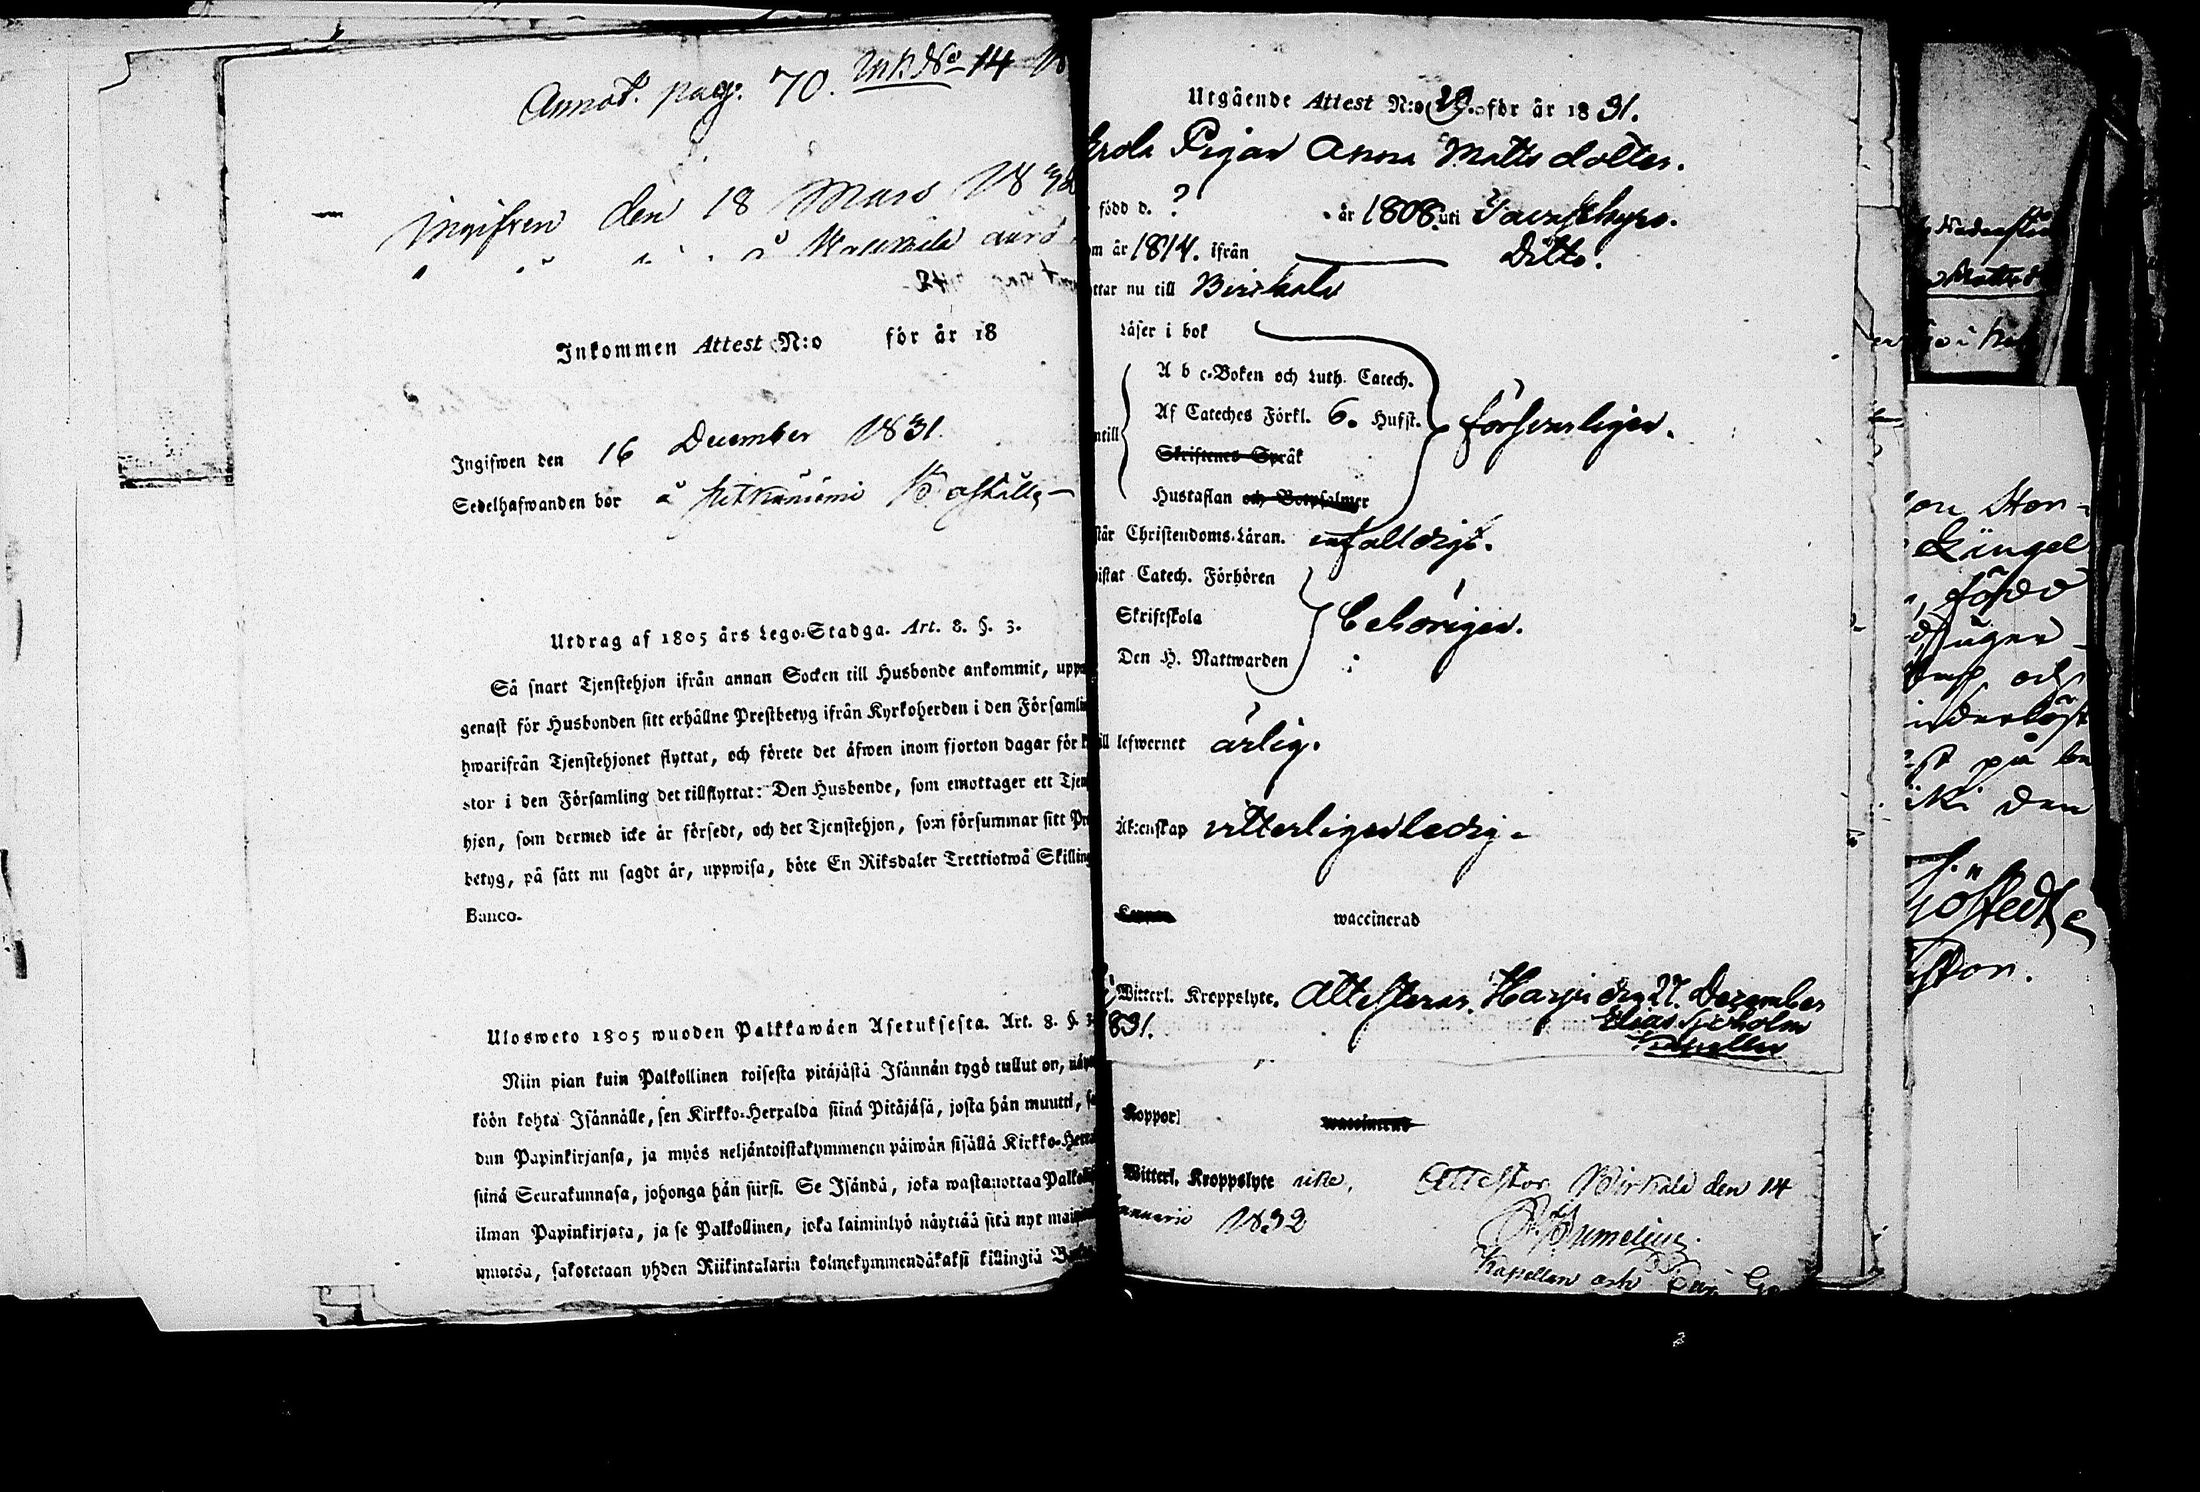 Annot. pag. 70. Ink No 14
Ingifven den 18 Mars 18
å
Inkommen Attest N:o för år 18
Ingifwen den 16 December 1831.
Sedelhafwanden bor å
Utdrag af 1805 års Lego-Stadga. Art. 8. §. 3.
Så snart Tjenstehjon ifrån annan Socken till Husbonde ankommit, uppw
genast för Husbonden sitt erhållne Prestbetyg ifrån Kyrkoherden i den Församlin
hwarifrån Tjenstehjonet flyttat, och förete det äfwen inom fjorton dagar för
stor i den Församling det tillflyttat: Den Husbonde, som emottager ett Tjen
hjon, som dermed icke är försedt, och det Tjenstehjon, som försummar sitt Pr
betyg, på sätt nu sagdt är, uppwisa, böte En Riksdaler Trettiotwå Skilling
Banco.
Ulosweto 1805 wuoden Palkkawäen Asetuksesta. Art. 8. §. 3
Niin pian kuin Palkollinen toisesta pitäjästä Isännän tygö tullut on, näyt
köön kohta Isännälle, sen Kirkko-Herralda siinä Pitäjäsä, josta hän muutti, s
dun Papinkirjansa, ja myös neljäntoistakymmenen päiwän sisällä Kirkko-Herra
siinä Seurakunnasa, johonga hän siirsi. Se Isändä, joka wastanottaa Palkolli
ilman Papinkirjata, ja se Palkollinen, joka laiminlyö näyttää sitä nyt main
muotoa, sakotetaan yhden Riikintalarin kolmekymmendäkaksi killingiä Ban
Utgående Attest N:o 29. för år 1831.
Pigan Anna Matts dotter.
född d. ? år 1808. uti Tavastkyro.
m år 1814. ifrån Ditto.
ttar nu till Birkala
Läser i bok
A b c-Boken och Luth. Catech.
Af Cateches Förkl. 6. Hufst. försvarligen.
ntill
Skriftenes Språk
Hustaflan och Botpsalmer
står Christendoms-Läran. enfaldigt.
istat Catech. Förhören
Skriftskola behörigen.
Den H. Nattwarden
ill lefwernet ärlig.
Äktenskap vitterligen ledig.
Koppor waccinerad
Witterl. Kroppslyte. Attesteras. Harju den 27. December
1831.
Elias Sjöholm
Kapellan
Koppor] waccinerad
Witterl. Kroppslyte icke. Attesterar Birkala den 14
Januarii 1832
Kapellan och
on Sten-
Engel
född
och
på
den
Sjöstedt
Pastor.